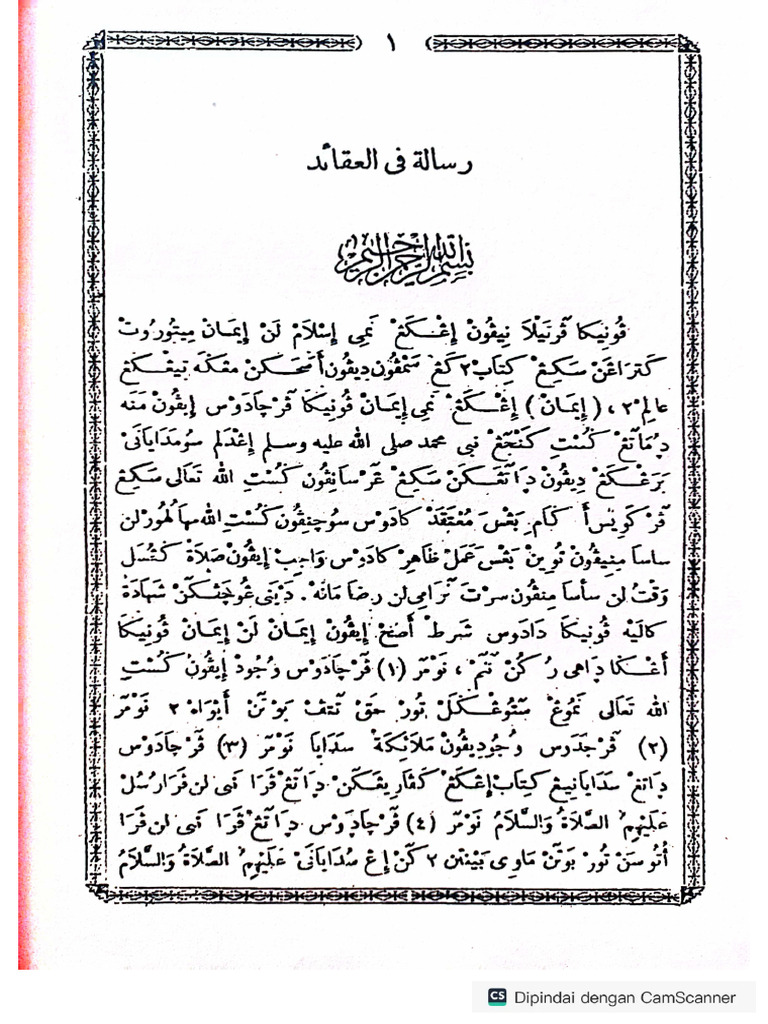 ١
رسالة فى العقائد
بسم الله الرحمن الرحيم
ڤونيكا ڤرتيلا نيڤون إڠــكڠ نمي إسلام لن إيمان ميتوروت
كتراڠن سكيڠ كتاب ٢ كڠ سمڤون ديڤون أصحكن
عالم ٢ ، ( إيمان ) إڠــكڠ نمي إيمان ڤونيكا ڤرچادوس إيڤون منه
دماتڠ كُستِ كنجڠ نبي محمد صلى الله عليه وسلم إڠدلم سومداياني
بَرڠــكڠ ديڤون داتڠــكن سكيڠ ڠرسانيڤون كُستِ الله تعالى سكيڠ
ڤركويس معتقد كادوس سوچنيڤون كُستِ الله مها لهور لن
ساسامنيڤون توين بڠس عمل ظاهر كادوس واجب إيڤون صلاة ݢڠسل
وقت لن ساسا منڤون سرت ترامي لن رضا مانه . دينى ڠوچڤكن شهادة
كاليه ڤونيكا دادوس شرط أصح إيڤون إيمان لن إيمان ڤونيكا
أڠــكا داهي ركن ننم ، نومر (١) ڤرچادوس وجود إيڤون كُستِ
الله تعالى نموڠ ستوڠــكل تور حق بوتن أيواه ٢ نومر
(٢) ڤرچدوس وجوديڤون ملائكة سدايا نومر (٣) ڤرچادوس
داتڠ سدايا نيڠ كتاب إڠكڠ كڤاريڠكن داتڠ ڤرا نبي لن ڤرا رسل
عليهم الصلاة والسلام نومر (٤) ڤرچادوس داتڠ ڤرا نبي لن ڤرا
أتوسن تور بوتن ماوي بينتن ٢ كن إڠ سداياني عليهم الصلاة والسلام
Dipindai dengan CamScanner